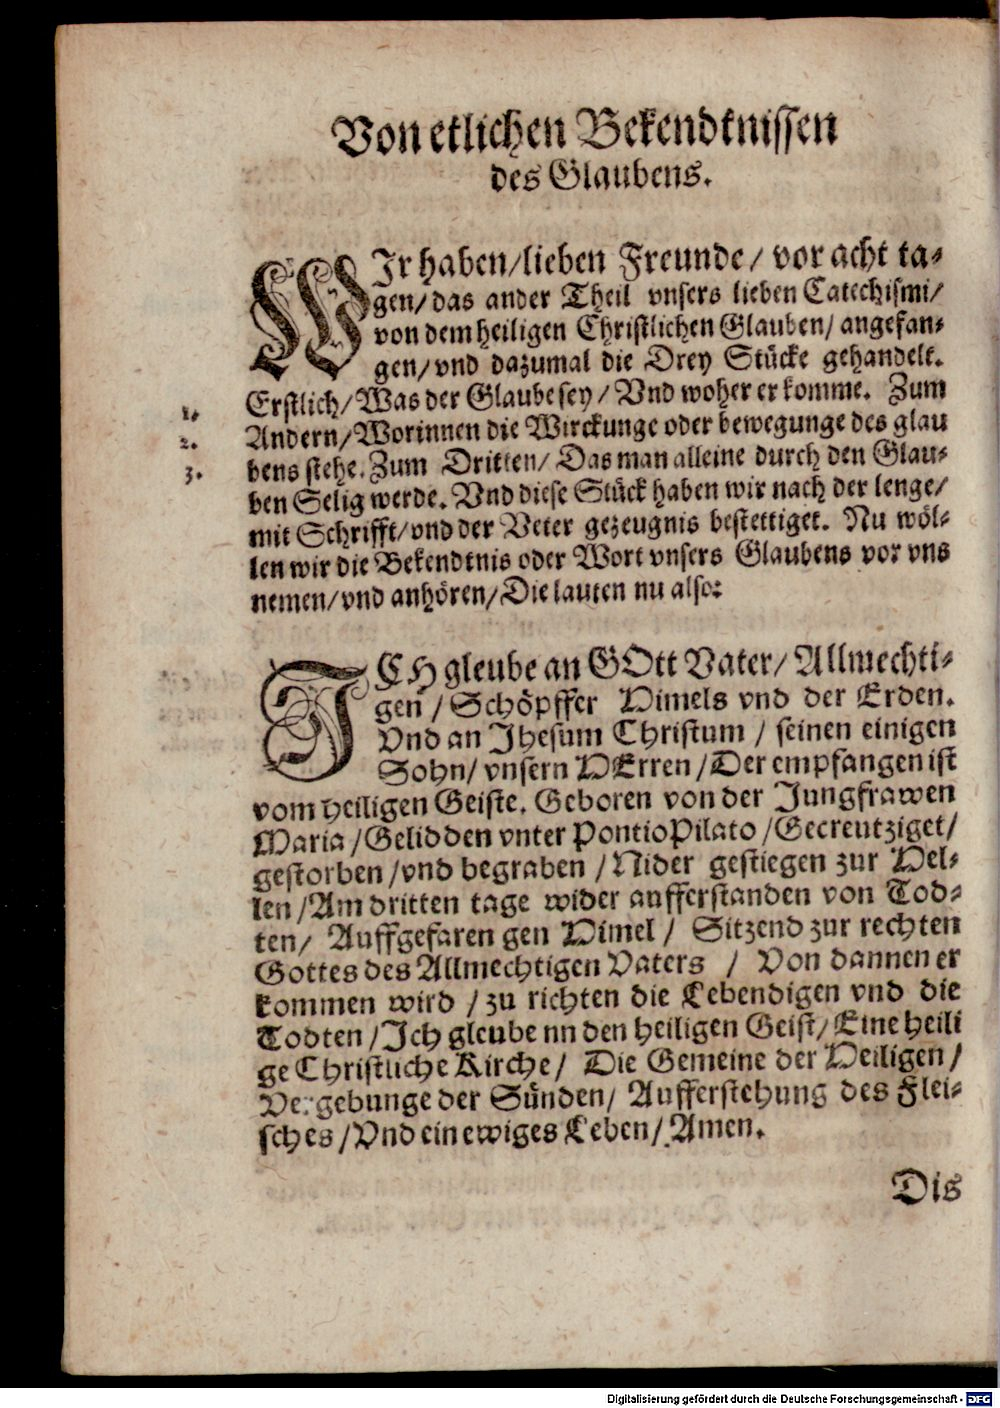 Von etlichen Bekendtnissen
des Glaubens.
WIr haben/lieben Freunde/ vor acht ta-
gen/das ander Theil vnsers lieben Catechismi/
von dem heiligen Christlichen Glauben/ angefan-
gen/vnd dazumal die Drey Stücke gehandelt.
Erstlich/Was der Glaube sey/Vnd woher er komme. Zum
1.
Andern/Worinnen die Wirckunge oder bewegunge des glau
2.
bens stehe. Zum Dritten/ Das man alleine durch den Glau-
3.
ben Selig werde. Vnd diese Stück haben wir nach der lenge/
mit Schrifft/vnd der Veter gezeugnis bestettiget. Nu wöl-
len wir die Bekendtnis oder Wort vnsers Glaubens vor vns
nemen/vnd anhören/Die lauten nu also:
ICH gleube an GOtt Vater/Allmechti-
gen/Schöpffer Himels vnd der Erden.
Vnd an Jhesum Christum / seinen einigen
Sohn/vnsern HErren/Der empfangen ist
vom heiligen Geiste. Geboren von der Jungfrawen
Maria/Gelidden vnter Pontio Pilato/Gecreutziget/
gestorben/vnd begraben/Nider gestiegen zur Hel-
len/Am dritten tage wider aufferstanden von Tod-
ten/ Auffgefaren gen Himel/ Sitzend zur rechten
Gottes des Allmechtigen Vaters / Von dannen er
kommen wird/zu richten die Lebendigen vnd die
Todten/Ich gleube nn den heiligen Geist/Eine heili
ge Christliche Kirche/ Die Gemeine der Heiligen/
Vergebunge der Sünden/ Aufferstehung des Flei-
sches/Vnd ein ewiges Leben/Amen.
Dis
Digitalisierung gefördert durch die Deutsche Forschungsgemeinschaft - DFG